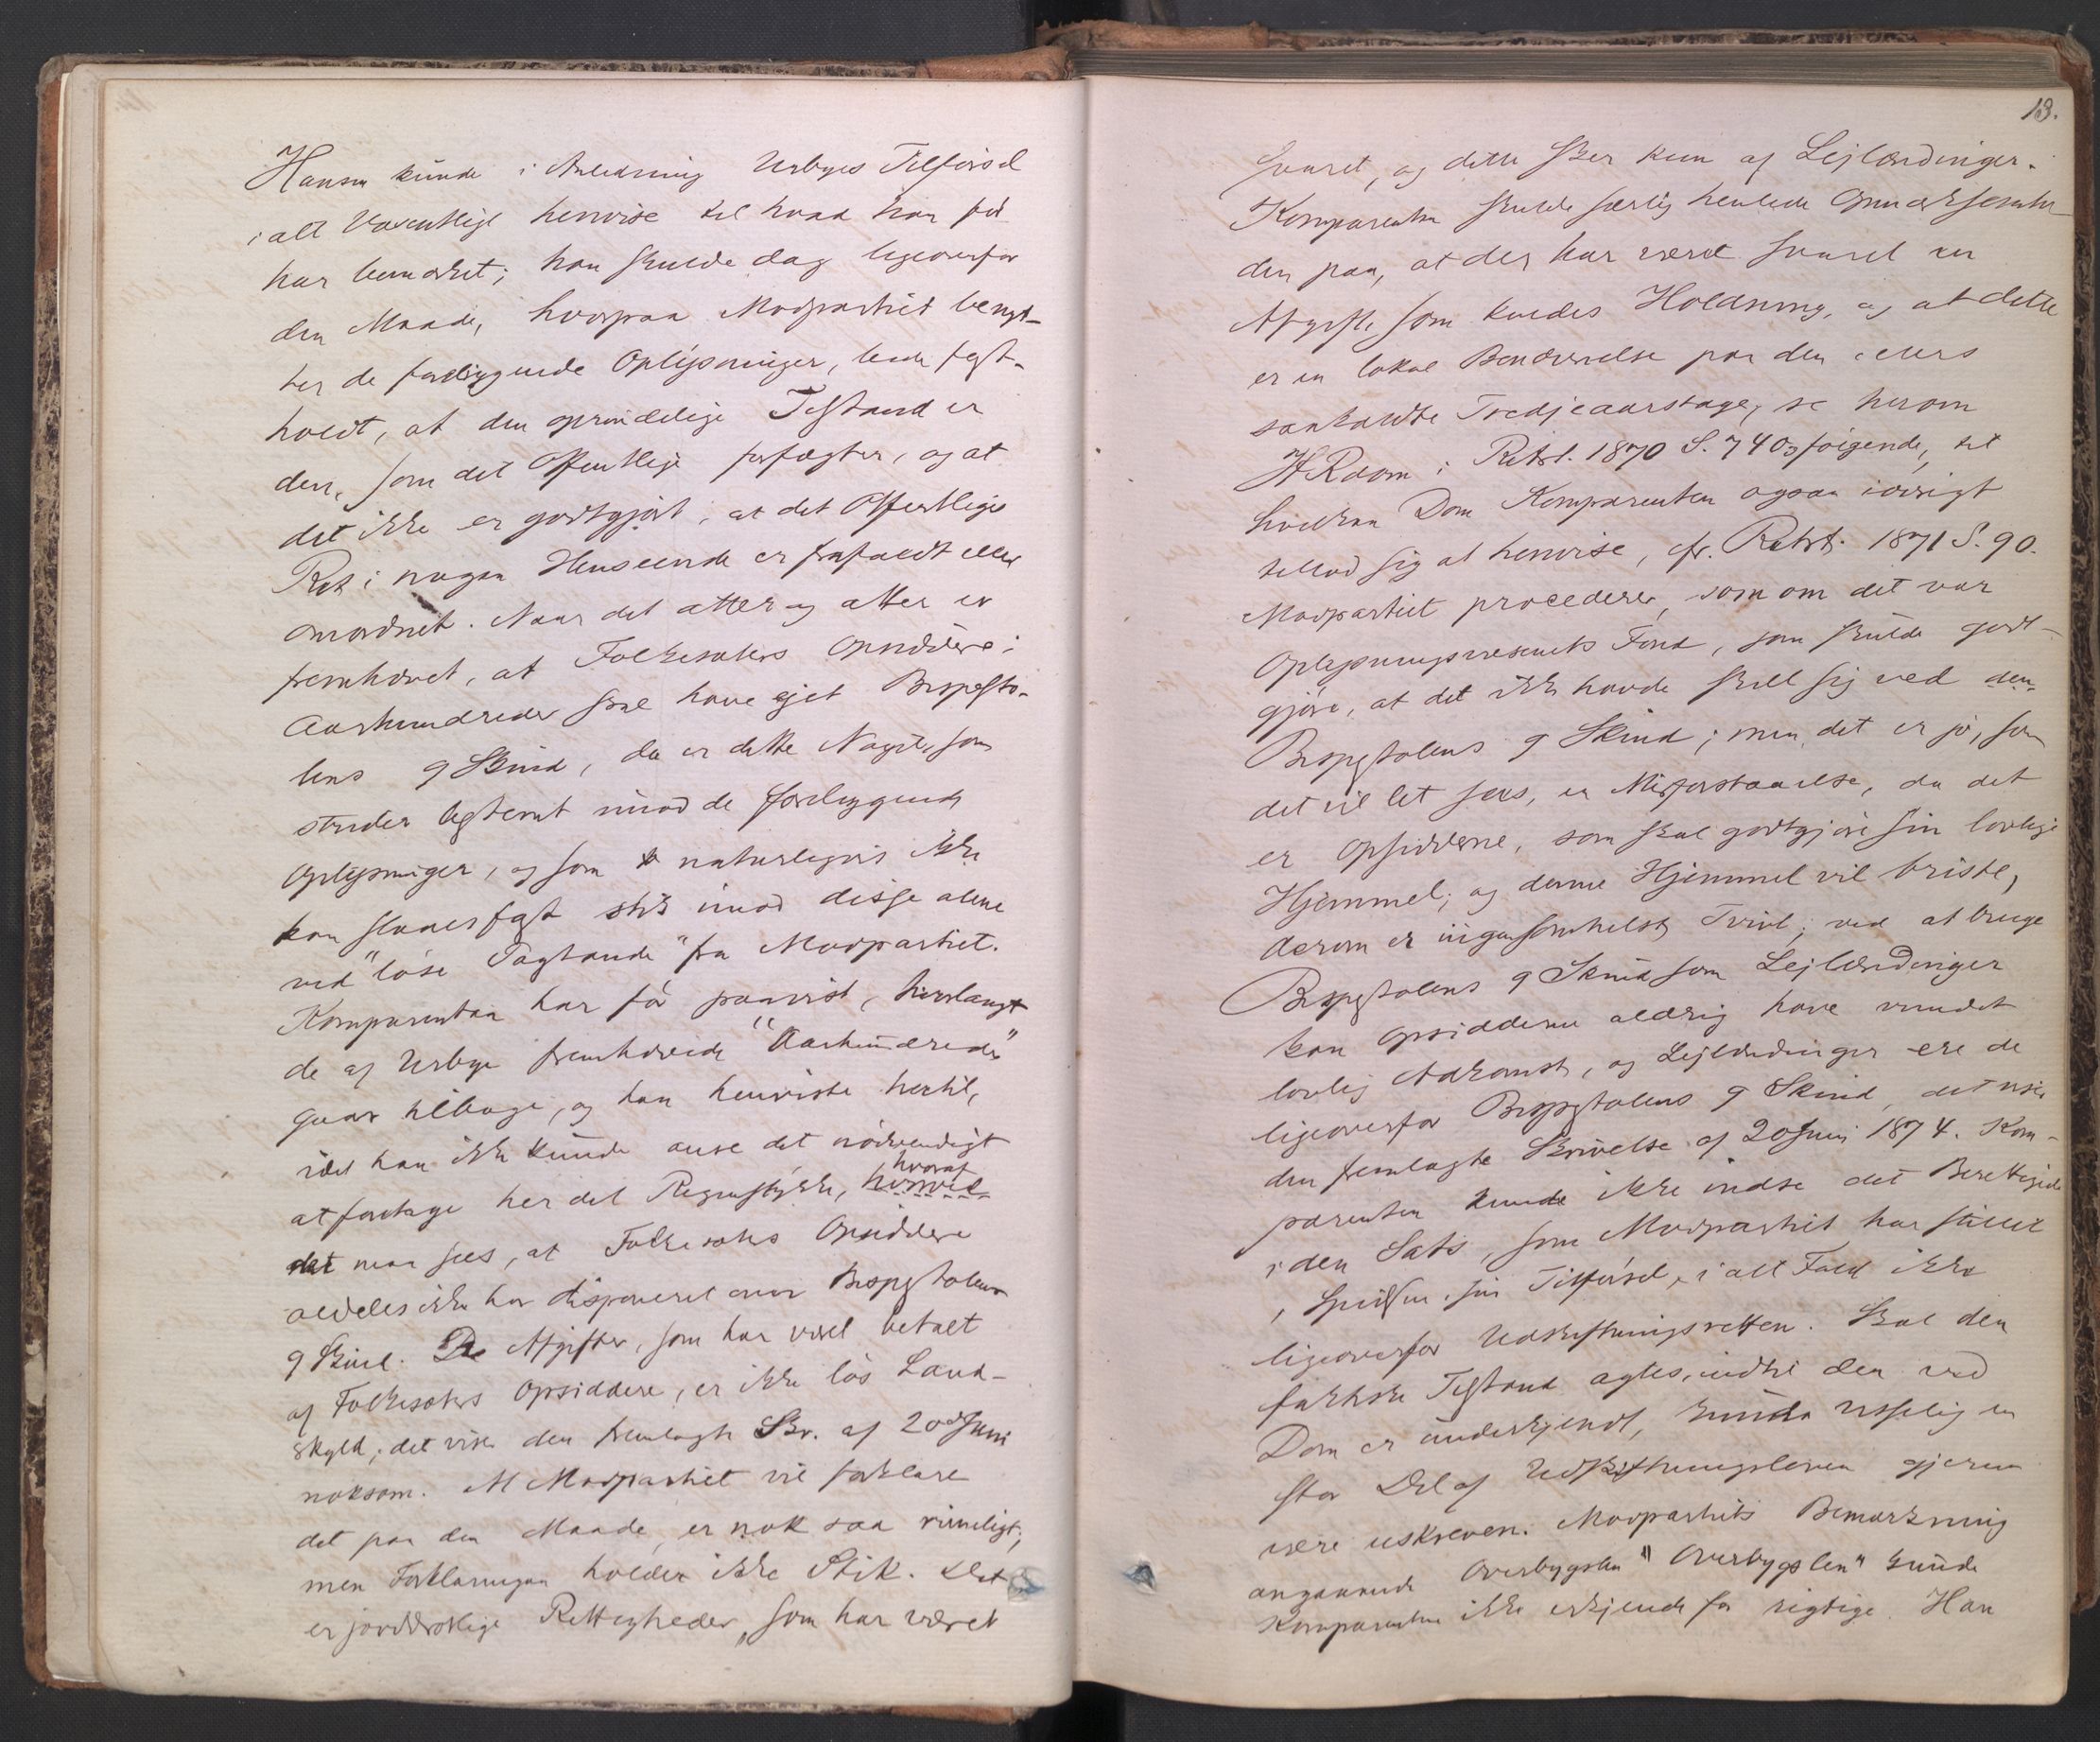 Hansen kunde i Anledning Urbyes Tilførsel
i alt Væsentligt henvise til hvad han før
har bemærket; han skulde dog ligeoverfor
den Maade, hvorpaa Modpartiet benyt-
ter de foreliggende Oplysninger, bede fast-
holdt, at den oprindelige Tilstand er
den, som det Offentlige forfægter, og at
det ikke er godtgjort, at det Offentliges
Ret i nogen Henseende er frafaldt eller
omordnet. Naar det atter og atter er
fremhævet, at Folkesøkers Opsiddere i
Aarhundreder skal have ejet Bispesto-
lens 9 Skind, da er dette Noget, som
strider bestemt imod de foreliggende
Oplysninger, og som naturligvis ikke
kan slaaes fast stik imod disse alene
ved "løse Pagtande" fra Modpartiet.
Komparenten har før paavist, hvorlangt
de af Urbye fremhævede "Aarhundreder"
gaar tilbage, og han henviste hertil,
idet han ikke kunde anse det nødvendigt
at foretage her det Regnestykke, hvoraf
det maa sees, at Folkesøkers Opsiddere
aldeles ikke har disponeret over Bispestolens
9 Skind. De Afgifter, som har været betalt
af Folkesøkers Opsiddere, er ikke løs Land-
skyld; det viser den fremlagte Skr. af 20de Juni
noksom. At Modpartiet vil forklare
det paa den Maade, er nok saa rimeligt;
men Forklaringen holder ikke Stik. Det
er jorddrotlige Rettigheder, som har været
13.
svaret, og dette sker kun af Lejlændinger.
Komparenten skulde særlig henlede Opmærksomhe-
den paa, at der har været svaret en
Afgift som kaldes Holdning, og at dette
er en lokal Benævnelse paa den ellers
saakaldte Tredjeaarstage, se herom
HRdom i Retst. 1870 S. 740 og følgende, til
hvilken Dom Komparenten ogsaa iøvrigt
tillod sig at henvise, cfr. Retst. 1871 S. 90.
Modpartiet procederer, som om det var
Oplysningsvesenets Fond, som skulde godt-
gjøre, at det ikke havde skilt sig ved den
Bispestolens 9 Skind; men det er jo, som
det vil let sees, en Misforstaaelse, da det
er Opsidderne, som skal godtgjøre sin lovlige
Hjemmel; og denne Hjemmel vil briste,
derom er ingensomhelst Tvivl; ved at bruge
Bispestolens 9 Skind som Lejlændinger
kan Opsidderne aldrig have vundet
lovlig Adkomst, og Lejlændinger ere de
ligeoverfor Bispestolens 9 Skind, det viser
den fremlagte Skrivelse af 20 Juni 1874. Kom-
parenten kunde ikke indse det Berettigede
i den Sats, som Modpartiet har stillet
i Spidsen i sin Tilførsel, i alt Fald ikke
ligeoverfor Udskiftningsretten. Skal den
faktiske Tilstand agtes, indtil den ved
Dom er underkjendt, kunde visselig en
stor Del af Udskiftningsloven gjerne
være uskreven. Modpartiets Bemærkning
angaaende Overbygslen "Overbygslen" kunde
Komparenten ikke erkjende for rigtige. Han